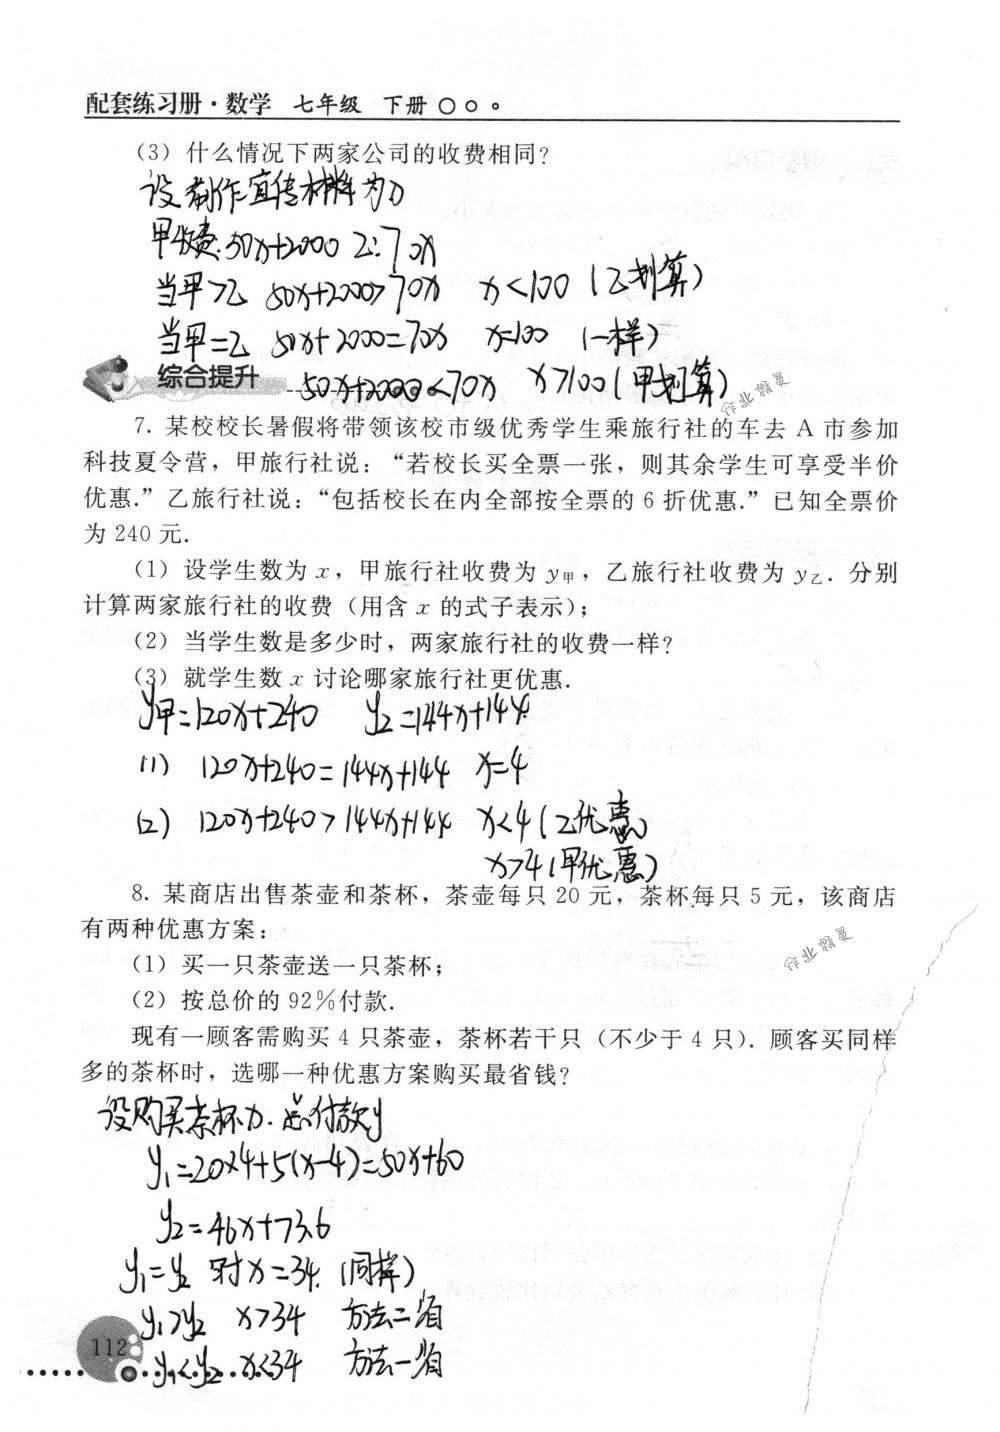 配套练习册·数学 七年级 下册
(3) 什么情况下两家公司的收费相同?
设制作宣传材料为x
甲收费:50x+2000 乙:70x
当甲>乙 50x+2000>70x x<100 (乙划算)
当甲=乙 50x+2000=70x x=100 (一样)
综合提升
50x+2000<70x x>100(甲划算)
作业精灵
7. 某校校长暑假将带领该校市级优秀学生乘旅行社的车去 A 市参加
科技夏令营，甲旅行社说：“若校长买全票一张，则其余学生可享受半价
优惠.”乙旅行社说：“包括校长在内全部按全票的 6 折优惠.”已知全票价
为 240 元.
(1) 设学生数为 x，甲旅行社收费为 y甲，乙旅行社收费为 y乙. 分别
计算两家旅行社的收费（用含 x 的式子表示)；
(2) 当学生数是多少时，两家旅行社的收费一样?
(3) 就学生数 x 讨论哪家旅行社更优惠.
y甲=120x+240 y乙=144x+144
(1) 120x+240=144x+144 x=4
(2) 120x+240>144x+144 x<4(乙优惠)
x>4(甲优惠)
8. 某商店出售茶壶和茶杯，茶壶每只 20 元，茶杯每只 5 元，该商店
有两种优惠方案：
作业精灵
(1) 买一只茶壶送一只茶杯；
(2) 按总价的 92%付款.
现有一顾客需购买 4 只茶壶，茶杯若干只（不少于 4 只). 顾客买同样
多的茶杯时，选哪一种优惠方案购买最省钱?
设购买茶杯x.总付款y
y1=20x4+5(x-4)=50x+60
y2=46x+73.6
y1=y2 时x=34. (同样)
y1>y2 x>34 方法二省
y1<y2 x<34 方法一省
112